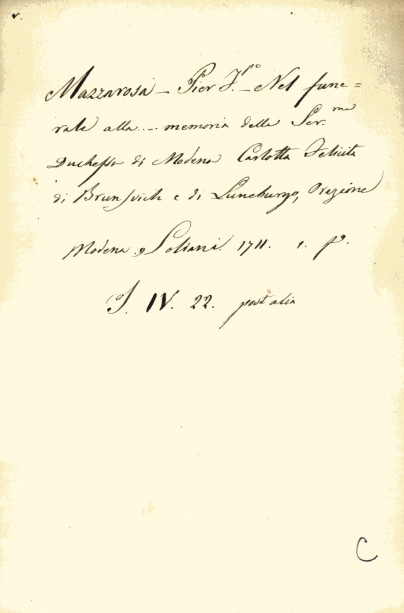 Mazzarosa – Pier F.co – Nel fune=
rale alla ... memoria della Ser.ma
Duchessa di Modena Carlotta Felicita
di Brunsvich e di Luneburgo, Orazione
Modena, Soliani. 1711. 1. fo.
J. IV. 22. post alia
C